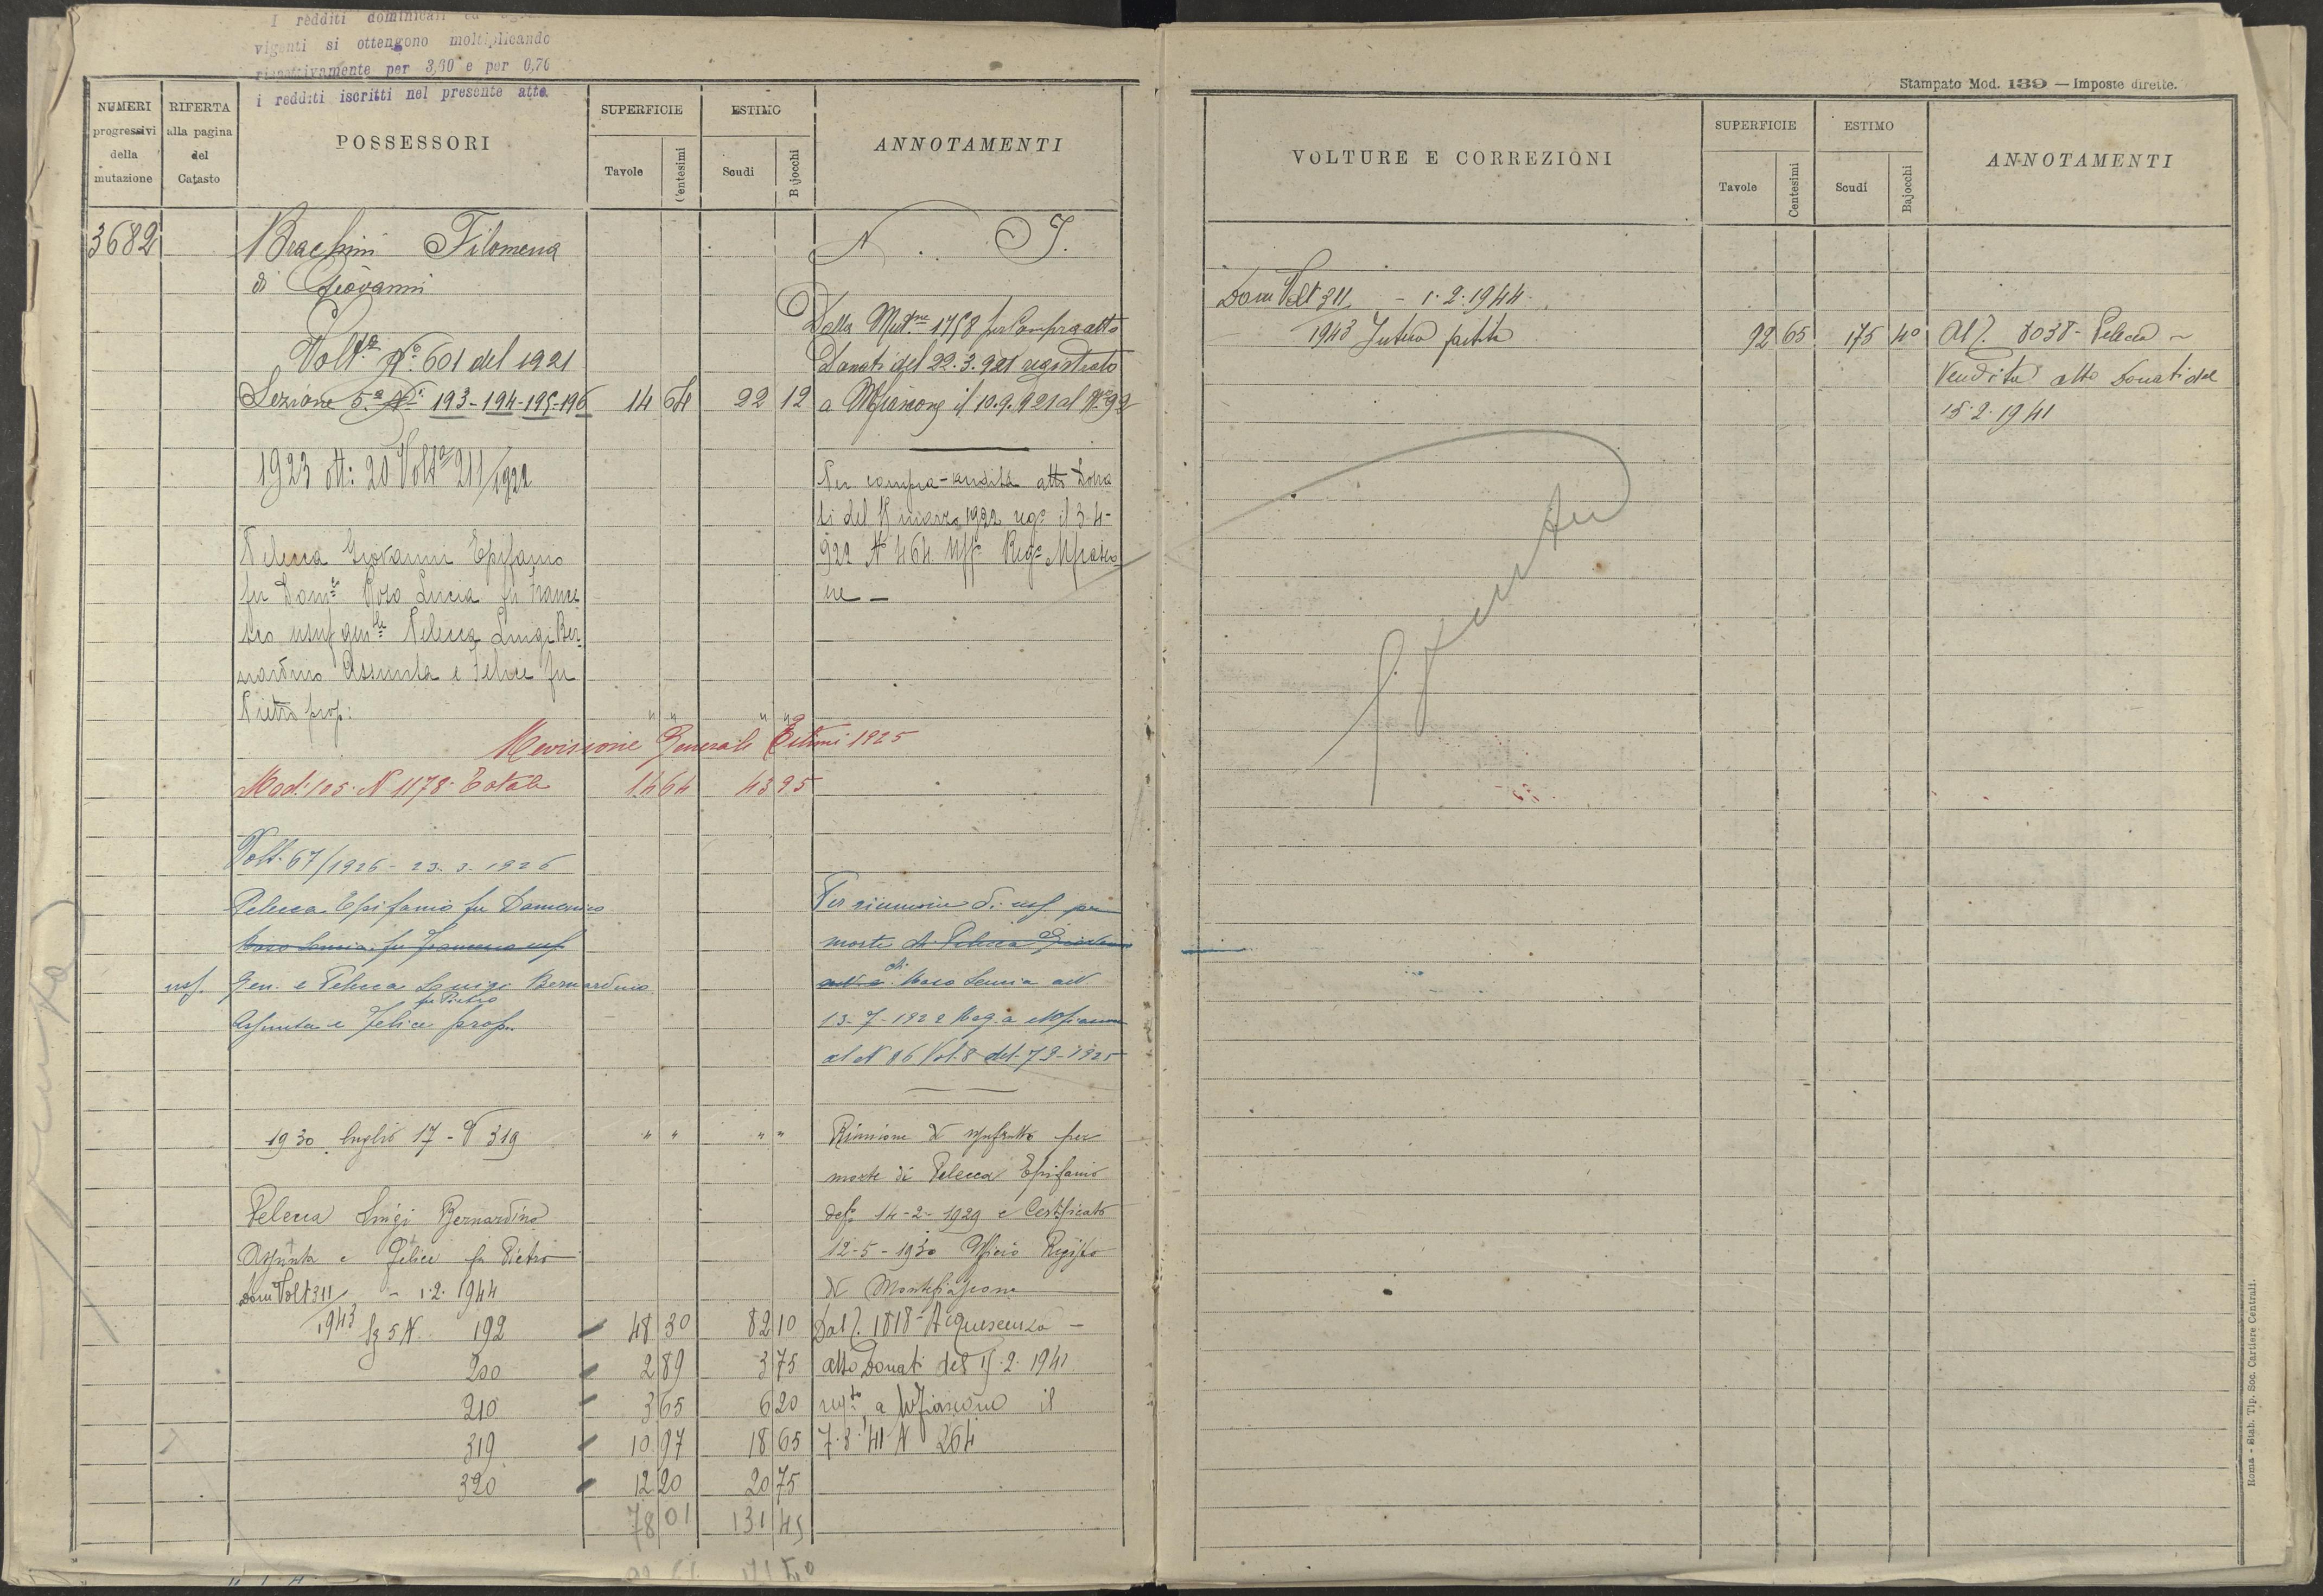 I redditi dominicali ed
viganti si ottengono moltiplicando
rispettivamente per 3,60 e per 0,70
i redditi iscritti nel presente atto
NUMERI progressivi della mutazione
RIFERTA alla pagina del Catasto
POSSESSORI
SUPERFICIE
Tavole
Centesimi
ESTIMO
Scudi
Bajocchi
ANNOTAMENTI
3682 Brachini Filomena N. I.
di Giovanni
Dalla Mutne 1758 per Compra atto
Volta No 601 del 1921 Donati del 22.3.921 registrato
Sezione 5a Ni 193-194-195-196 14 64 22 12 a Mfiascone il 10.9.921 al No 92
1923 ott: 20 Volta 211/1922 Per compra-vendita atto Dona
ti del 15 marzo 1922 rega il 3-4-
Pelecca Giovanni Epifanio 922 N 464 Uffo Rego Mfiasco
fu Domco Roso Lucia fu France ne —
sco usuf genle Pelecca Luigi Ber
nardino Assunta e Felice fu
Pietro prop: " " " "
Revisione Generale Estimi 1925
Mod: 105 N 1178 Totale 14 64 43 95
Volt. 67/1926 - 23.3.1926
Pelecca Epifanio fu Domenico Per riunione di usf. per
Roso Lucia fu Francesco usf morte di Pelecca Giovanni
usf. Gen. e Pelecca Luigi Bernardino di Roso Lucia avv
fu Pietro
Assunta e Felice prop. 13-7-1922 Reg. a Mfiascone
al N 86 Vol. 8 del 7 9-1925
1930 luglio 17 - V 319 " " " " Riunione di usufrutto per
morte di Pelecca Epifanio
Pelecca Luigi Bernardino 14-2-1929 e Certificato
Assunta e Felice fu Pietro 12-5-1930 Ufficio Registro
Dom Volt 311 - 1.2.1944 di Montefiascone
1943 Sz 5 N 192 48 30 82 10 Dal P. 1818 - Acquiescenza -
200 2 89 3 75 atto Donati del 15.2.1941
210 3 65 6 20 regto a Mfiascone il
319 10 97 18 65 7.3.'41 N 264
320 12 20 20 75
78 01 131 45
Stampato Mod. 139 — Imposte dirette.
VOLTURE E CORREZIONI
SUPERFICIE
Tavole
Centesimi
ESTIMO
Scudi
Bajocchi
ANNOTAMENTI
Dom Volt 311 - 1.2.1944
1943 Intera partita 92 65 175 40 Al P. 8038 - Pelecca -
Vendita atto Donati del
15.2.1941
Spenta
Spenta
Roma - Stab. Tip. Soc. Cartiere Centrali.